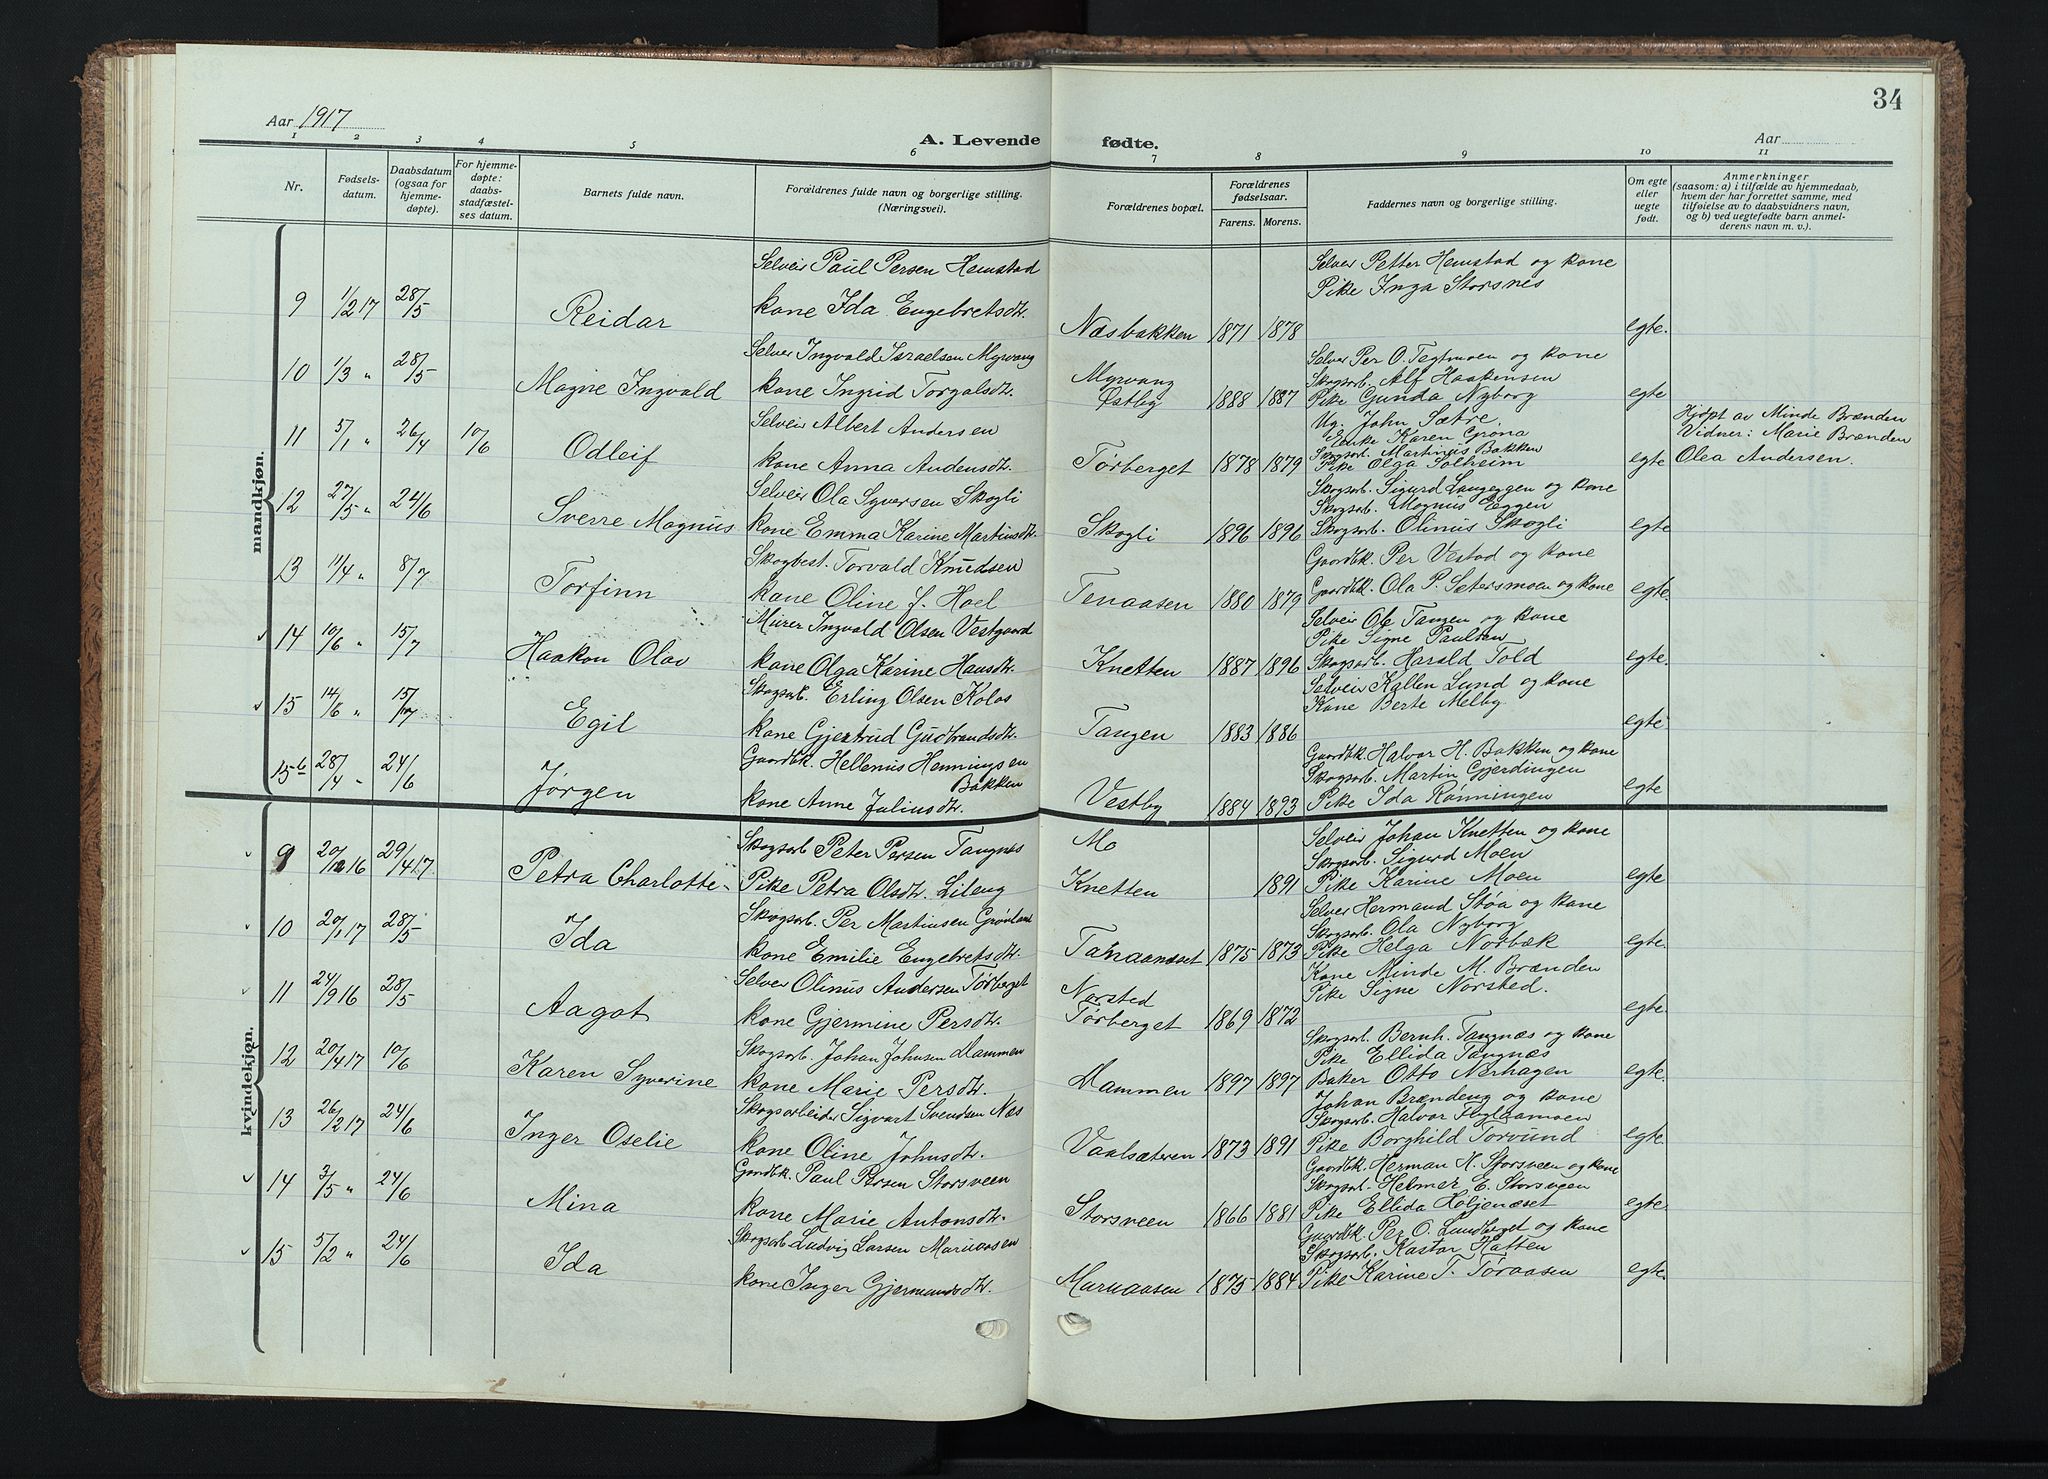 34
Aar 1917
Aar
1 2 3 4 5 6 7 8 9 10 11
A. Levende fødte.
Nr.
Fødsels-
datum.
Daabsdatum
(ogsaa for
hjemme-
døpte).
For hjemme-
døpte:
daabs-
stadfæstel-
ses datum.
Barnets fulde navn.
Forældrenes fulde navn og borgerlige stilling.
(Næringsvei).
Forældrenes bopæl.
Forældrenes
fødselsaar.
Farens. Morens.
Faddernes navn og borgerlige stilling.
Om egte
eller
uegte
født.
Anmerkninger
(saasom: a) i tilfælde av hjemmedaab,
hvem der har forrettet samme, med
tilføielse av to daabsvidners navn,
og b) ved uegtefødte barn anmel-
derens navn m. v.).
mandkjøn.
Selveier Paul Persen Hemstad
Selveier Petter Hemstad og kone
Pike Inga Storsnes
9 1/2 17 28/5 Reidar kone Ida Engebretsdtr. Næsbakken 1871 1878 egte.
Selveier Ingvald Israelsen Myrvang
Selveier Per O. Tegtmoen og kone
Skogsarb. Alf Haakensen
10 1/3 " 28/5 Magne Ingvald kone Ingrid Torgalsdtr. Myrvang
Østby 1888 1887 Pike Gunda Nyborg egte
Selveier Albert Andersen
Ug. John Sætre,
Enke Karen Grøna
Skogsarb. Martinus Bakken
Hjdpt av Minde Brænden
Vidner: Marie Brænden
11 5/1 " 26/4 10/6 Odleif kone Anna Audensdtr. Tørberget 1878 1879 Pike Olga Solheim egte Olea Andersen.
Selveier Ola Syversen Skogli
Skogsarb. Sigurd Langeggen og kone
Skogsarb. Magnus Eggen
12 27/5 " 24/6 Sverre Magnus kone Emma Karine Martinsdtr. Skogli 1896 1896 Skogsarb. Olinus Skogli egte
Skogbest. Torvald Knudsen
Gaardbk. Per Vestad og kone
13 11/4 " 8/7 Torfinn kone Oline f. Hoel Tenaasen 1880 1879 Gaardbk. Ola P. Setersmoen og kone egte.
Murer Ingvald Olsen Vestgaard
Selveier Ole Tangen og kone
Pike Signe Paulsen
14 10/6 " 15/7 Haakon Olav kone Olga Karine Hansdtr. Knetten 1887 1896 Skogsarb. Harald Told egte.
Skogsarb. Erling Olsen Kolos
Selveier Kallen Lund og kone
Kone Berte Melby
15 14/6 " 15/7 Egil kone Gjertrud Gudbrandsdtr. Tangen 1883 1886 egte
Gaardbk. Hellenius Henningsen
Bakken
Gaardbk. Halvor H. Bakken og kone
Skogsarb. Martin Gjerdingen
15b 28/4 " 24/6 Jørgen kone Anne Juliusdtr. Vestby 1884 1893 Pike Ida Rønningen egte
kvindekjøn.
Skogsarb Peter Persen Tangnes
Mo
Selveier Johan Knetten og kone
Skogsarb. Sigurd Moen
9 20/12 16 29/4 17 Petra Charlotte Pike Petra Olsdtr. Lileng Knetten 1891 Pike Karine Moen egte
Skogsarb. Per Martinsen Grønland
Selveier Hermand Støa og kone
Skogsarb. Ola Nyborg
10 20/1 17 28/5 Ida kone Emilie Engebretsdtr. Tanaanæset 1875 1873 Pike Helga Norbæk egte
Selveier Olinus Andersen Tørberget
Kone Minde M. Brænden
Pike Signe Norsted.
11 24/9 16 28/5 Aagot kone Gjermine Persdtr. Norsted
Tørberget 1869 1872 egte
Skogsarb. Johan Johnsen Hammen
Skogsarb. Bernh. Tangnæs og kone
Pike Ellida Tangnæs
12 20/4 17 10/6 Karen Syverine kone Marie Persdtr. Hammen 1897 1897 Baker Otto Nerhagen egte.
Skogsarbeider Sigvart Svendsen Næs
Johan Brændeng og kone
13 26/2 17 24/6 Inger Oselie kone Oline Johnsdtr. Vaalsæteren 1873 1891 Pike Borghild Torvund egte
Gaardbk. Paul Persen Storsveen
Gaardbk. Herman H. Storsveen og kone
Skogsarb. Helmer E. Storsveen
14 3/5 " 24/6 Mina kone Marie Antonsdtr. Storsveen 1866 1881 Pike Ellida Holjenæset egte
Skogsarb Ludvig Larsen Maruaasen
Gaardbk. Per O. Lundberget og kone
Skogsarb. Kastor Hatten
15 5/2 " 24/6 Ida kone Inger Gjermundsdtr. Maruaasen 1875 1884 Pike Karine T. Tøraasen egte